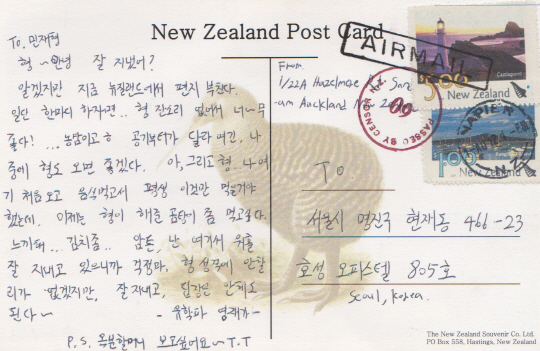 New Zealand Post Card
To. 민재형
형 ~ 안녕 잘 지냈어?
알겠지만 지금 뉴질랜드에서 편지 부친다.
일단 한마디 하자면.. 형 잔소리 없어서 너~무
좋다! ... 농담이고ㅎ 공기부터가 달라 여긴. 나
중에 형도 오면 좋겠다. 아, 그리고 형, 나 여
기 처음 오고 음식먹고서 평생 이것만 먹을거야
했는데. 이제는 형이 해준 곰탕이 좀 먹고싶다.
느끼해... 김치좀.. 암튼, 난 여기서 위를
잘 지내고 있으니까 걱정마. 형 성격에 안할
리가 없겠지만, 잘 지내고, 답장은 안해도
된다~ - 유학파 영재가-
P.S. 옥분할머니 보고싶어요~ T.T
From.
1/22A Hazelmere
Auckland New
AIRMAIL
PASSED BY CENSOR N.Z.
90
5.00
Castlepoint
New Zealand
1.00
New Zealand
NAPIER
To
서울시 명진구 현재동 466-23
호성 오파스텔 805호
Seoul, Korea.
The New Zealand Souvenir Co. Ltd.
PO Box 558, Hastings, New Zealand